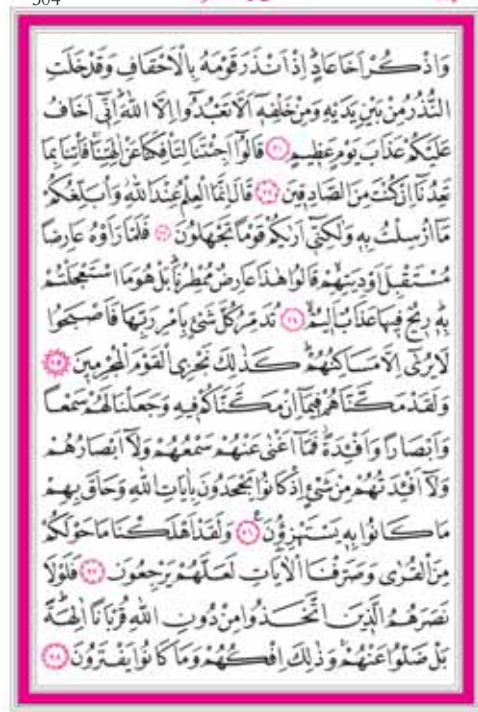 504
وَاذْكُرْ اَخَا عَادٍ اِذْ اَنْذَرَ قَوْمَهُ بِالْاَحْقَافِ وَقَدْ خَلَتِ
النُّذُرُ مِنْ بَيْنِ يَدَيْهِ وَمِنْ خَلْفِهِ اَلَّا تَعْبُدُوا اِلَّا اللّٰهَ اِنّٖى اَخَافُ
عَلَيْكُمْ عَذَابَ يَوْمٍ عَظِيمٍ ﴿٢١﴾ قَالُوا اَجِئْتَنَا لِتَاْفِكَنَا عَنْ اٰلِهَتِنَا فَاْتِنَا بِمَا
تَعِدُنَا اِنْ كُنْتَ مِنَ الصَّادِقِينَ ﴿٢٢﴾ قَالَ اِنَّمَا الْعِلْمُ عِنْدَ اللّٰهِ وَاُبَلِّغُكُمْ
مَا اُرْسِلْتُ بِهِ وَلٰكِنّٖى اَرٰيكُمْ قَوْمًا تَجْهَلُونَ ﴿٢٣﴾ فَلَمَّا رَاَوْهُ عَارِضًا
مُسْتَقْبِلَ اَوْدِيَتِهِمْ قَالُوا هٰذَا عَارِضٌ مُمْطِرُنَا بَلْ هُوَ مَا اسْتَعْجَلْتُمْ
بِهِ رِيحٌ فِيهَا عَذَابٌ اَلِيمٌ ﴿٢٤﴾ تُدَمِّرُ كُلَّ شَىْءٍ بِاَمْرِ رَبِّهَا فَاَصْبَحُوا
لَا يُرٰٓى اِلَّا مَسَاكِنُهُمْ كَذٰلِكَ نَجْزِى الْقَوْمَ الْمُجْرِمِينَ ﴿٢٥﴾
وَلَقَدْ مَكَّنَّاهُمْ فِيمَا اِنْ مَكَّنَّاكُمْ فِيهِ وَجَعَلْنَا لَهُمْ سَمْعًا
وَاَبْصَارًا وَاَفْـِٔدَةً فَمَا اَغْنٰى عَنْهُمْ سَمْعُهُمْ وَلَا اَبْصَارُهُمْ
وَلَا اَفْـِٔدَتُهُمْ مِنْ شَىْءٍ اِذْ كَانُوا يَجْحَدُونَ بِاٰيَاتِ اللّٰهِ وَحَاقَ بِهِمْ
مَا كَانُوا بِهِ يَسْتَهْزِؤُنَ ﴿٢٦﴾ وَلَقَدْ اَهْلَكْنَا مَا حَوْلَكُمْ
مِنَ الْقُرٰى وَصَرَّفْنَا الْاٰيَاتِ لَعَلَّهُمْ يَرْجِعُونَ ﴿٢٧﴾ فَلَوْلَا
نَصَرَهُمُ الَّذِينَ اتَّخَذُوا مِنْ دُونِ اللّٰهِ قُرْبَانًا اٰلِهَةً
بَلْ ضَلُّوا عَنْهُمْ وَذٰلِكَ اِفْكُهُمْ وَمَا كَانُوا يَفْتَرُونَ ﴿٢٨﴾